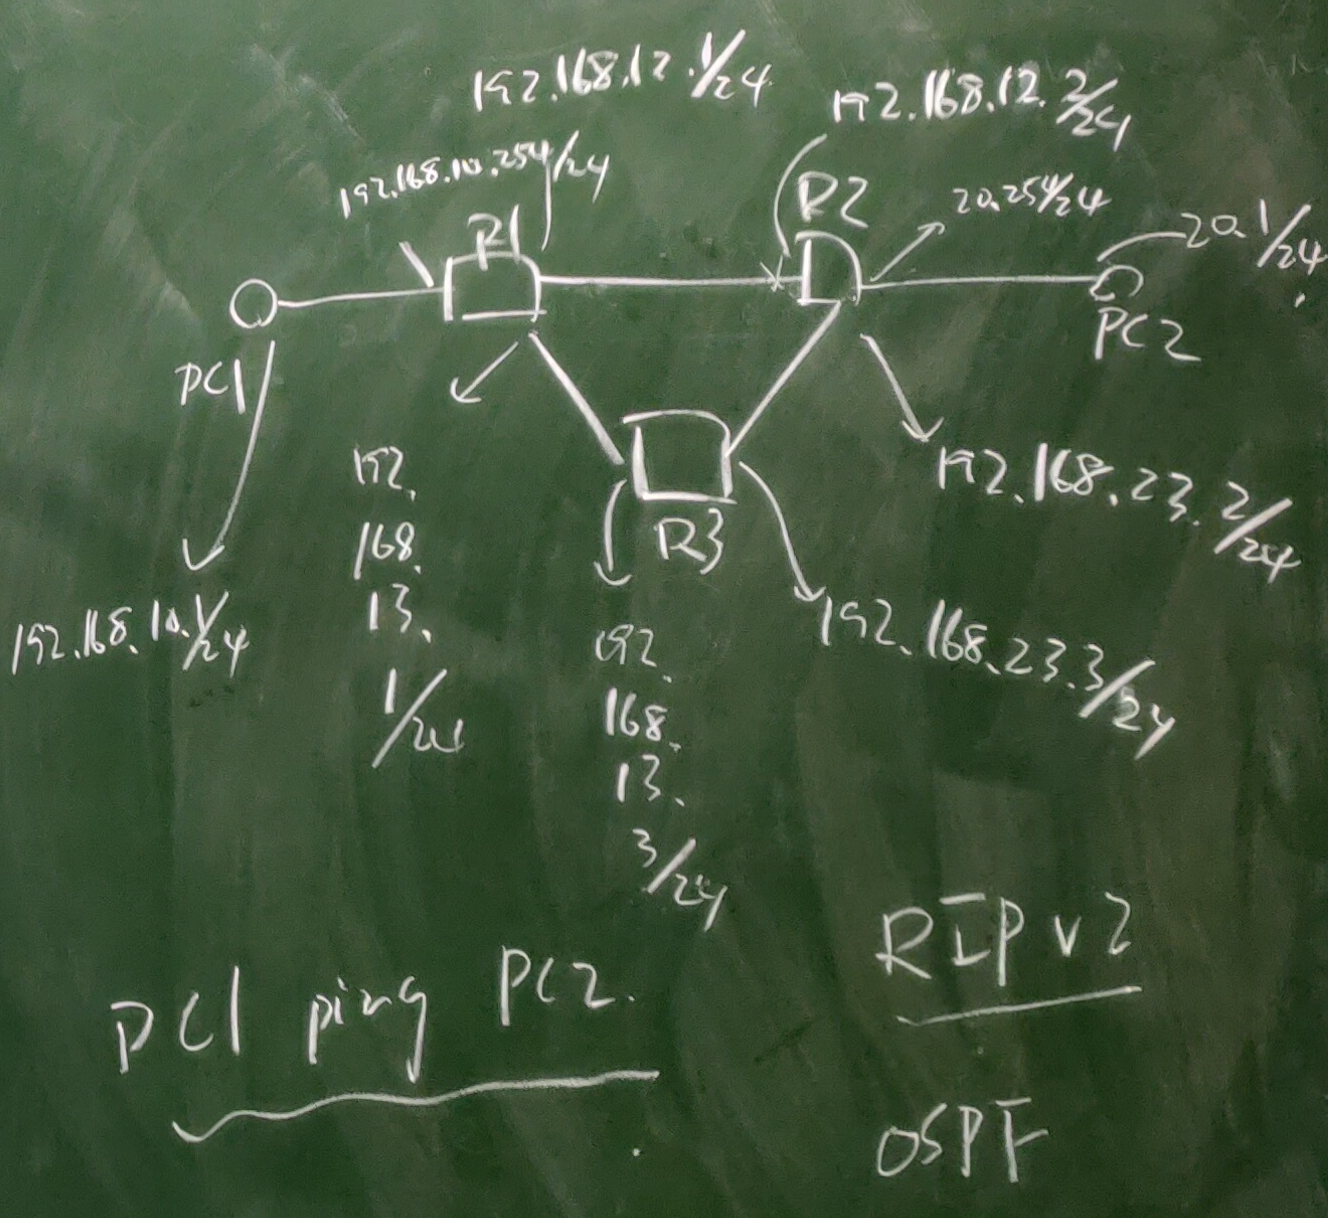 192.168.12.1/24
192.168.12.2/24
192.168.10.254/24
R1
R2
20.254/24
20.1/24
PC1
PC2
192.
168.
13.
1/24
192.168.23.2/24
R3
192.168.10.1/24
192.168.23.3/24
192.
168.
13.
3/24
RIPv2
PC1 ping PC2.
OSPF